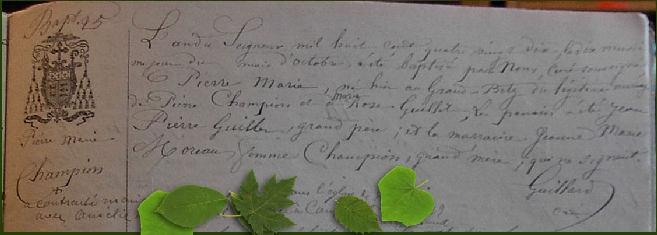 Bapt. 95
L'an du Seigneur mil huit cent quatre vingt dix, le dix neuvi
me jour du mois d'octobre a été baptisé par Nous, Curé soussigné
Pierre Marie, né hier au Grand-Betz du légitime mariage
de Pierre Champion et de Rose Marie Guillet, le parrain a été Jean
Pierre Guillet, grand père, et la marraine Jeanne Marie
Moreau, femme Champion, grand'mère, qui ne signent.
Guillard
Pierre Marie
Champion
+
a contracté mariage
avec
dans l'église